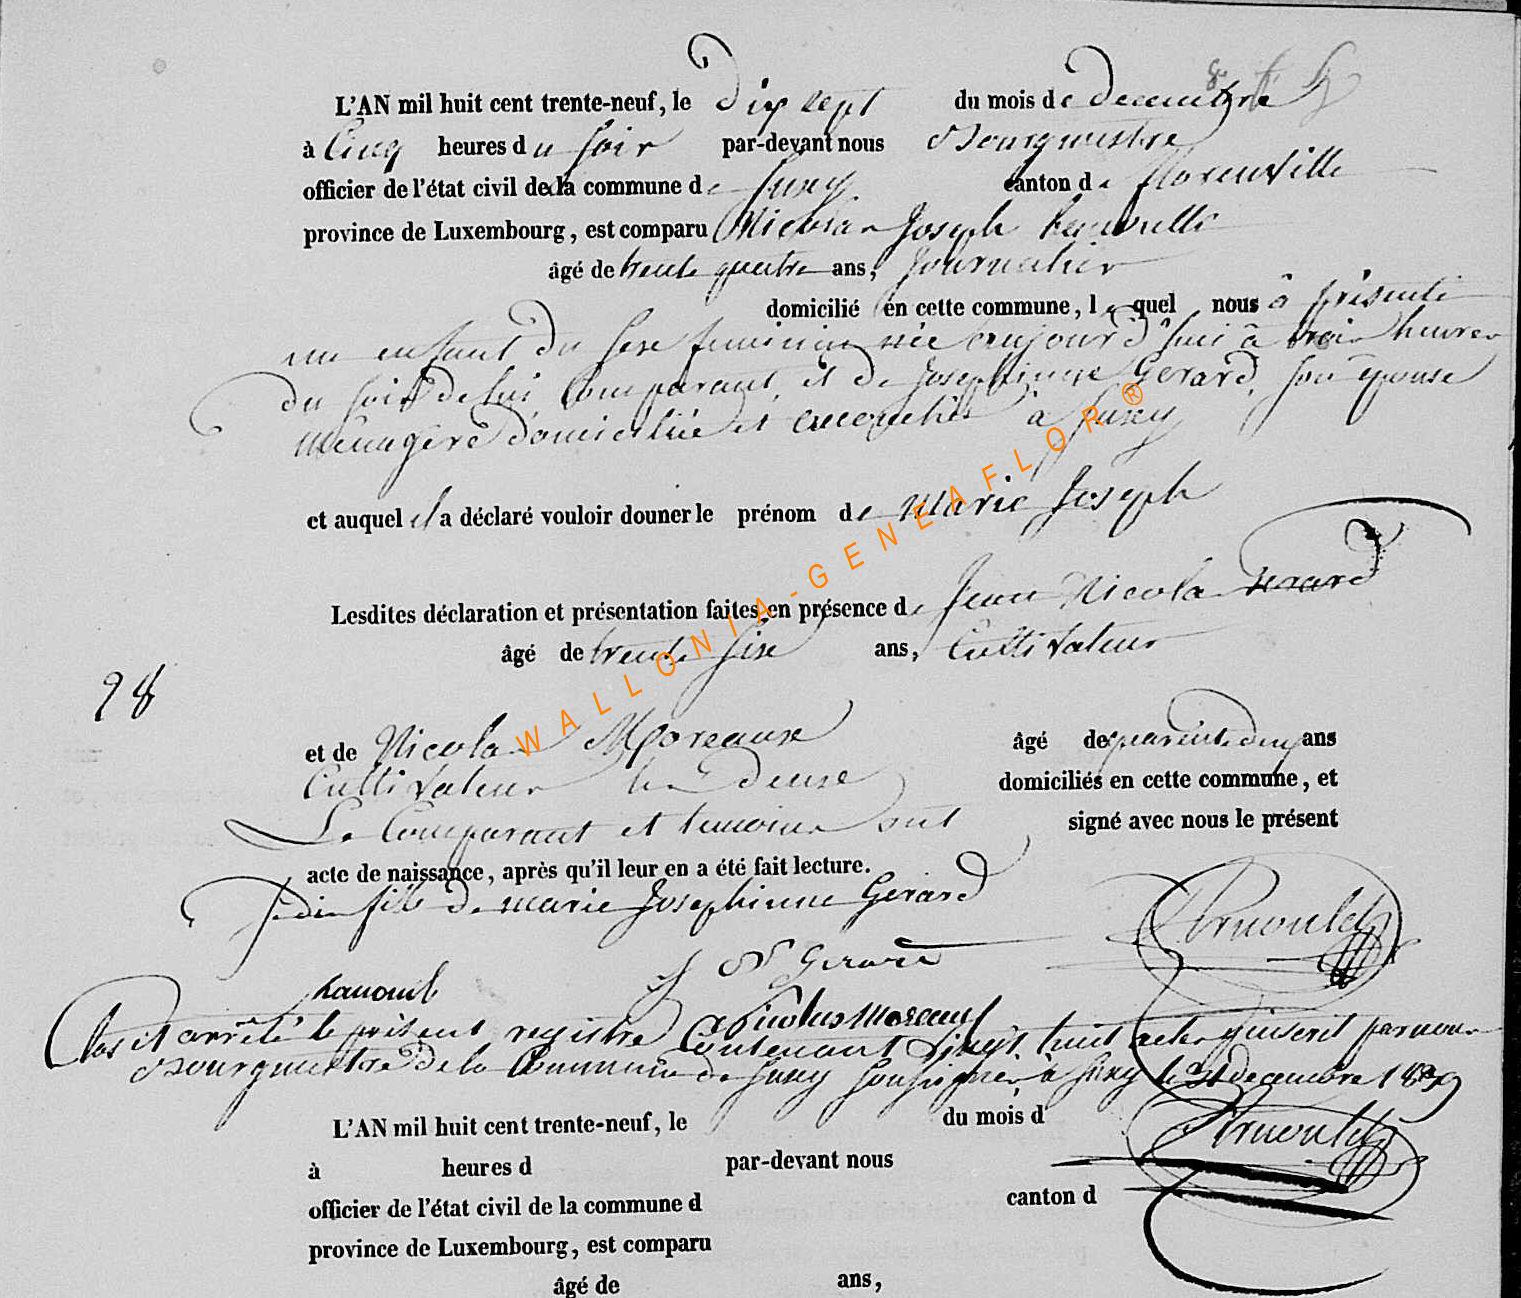 L'AN mil huit cent trente-neuf, le dix sept du mois de decembre
à Cinq heures du soir par-devant nous Bourgmestre
officier de l'état civil de la commune de Suxy canton de Florenville
province de Luxembourg, est comparu Nicolas Joseph
âgé de trente quatre ans, Journalier
domicilié en cette commune, lequel nous à présenté
un enfant du sexe feminin née aujourd'hui à trois heures
du soir de lui Comparant, et de Josephinne Gerard, son épouse
ménagère domiciliée et accouchée à Suxy
et auquel il a déclaré vouloir donner le prénom de Marie Joseph
Lesdites déclaration et présentation faites en présence de Jean Nicolas Gerard
âgé de trente six ans, Cultivateur
28
et de Nicolas Moreaux âgé de quarente deux ans
Cultivateur les deux domiciliés en cette commune, et
Le Comparant et temoins ont signé avec nous le présent
acte de naissance, après qu'il leur en a été fait lecture.
Je dis fille de marie Josephinne Gerard
Arnoulet
J N Gerard
nicolas moreaux
Clos et arrêté le présent registre Contenant vingt huit actes inscrit par nous
Bourgmestre de la Commune de Suxy soussigner à Suxy le 31 decembre 1839
Arnoulet
L'AN mil huit cent trente-neuf, le du mois d
à heures d par-devant nous
officier de l'état civil de la commune d canton d
province de Luxembourg, est comparu
âgé de ans,
WALLONIA-GENEAFLOR ®